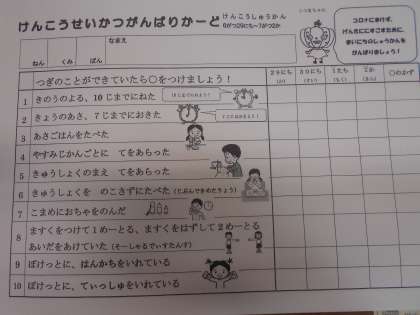 けんこうせいかつがんばりかーど
けんこうしゅうかん
6がつ29にち～7がつ2か
コロナにまけず、
げんきにすごすために、
まいにちのしゅうかんを
がんばりましょう！
ねん くみ ばん
なまえ
つぎのことができていたら〇をつけましょう！
29にち
30にち
1たち
2か
〇のかず
1 きのうのよる、10じまでにねた
2 きょうのあさ、7じまでにおきた
3 あさごはんをたべた
4 やすみじかんごとに てをあらった
5 きゅうしょくのまえ てをあらった
6 きゅうしょくを のこさずにたべた(じぶんできめたりょう)
7 こまめにおちゃをのんだ
8 ますくをつけて1めーとる、ますくをはずして2めーとる
あいだをあけていた(そーしゃるでぃすたんす)
9 ぽけっとに、はんかちをいれている
10 ぽけっとに、てぃっしゅをいれている